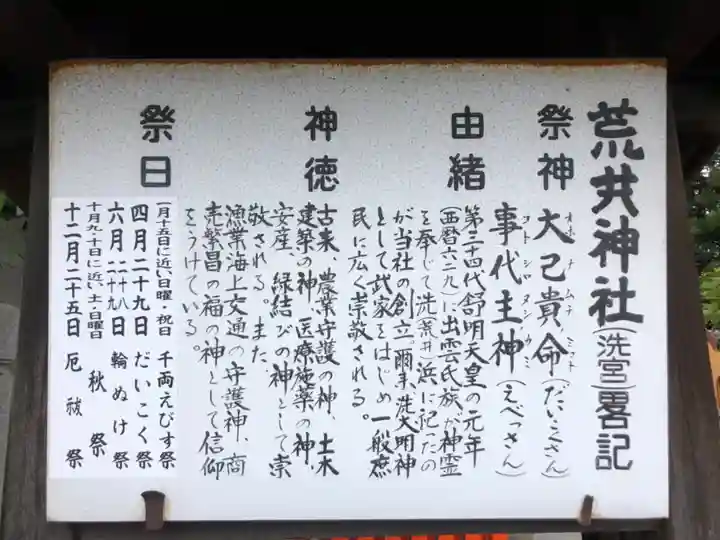 荒井神社(洗宮)畧記
祭神
大己貴命(だいこくさん)
オホナムチノミコト
事代主神(えべっさん)
コトシロヌシノカミ
由緒
第三十四代舒明天皇の元年
(西暦六二九)に出雲氏族が神霊
を奉じて洗(荒井)浜に祀ったの
が当社の創立、爾来、洗大明神
として武家をはじめ一般庶
民に広く崇敬される。
神徳
古来、農業守護の神、土木
建築の神、医療施薬の神、
安産、縁結びの神として崇
敬される。また、
漁業海上交通の守護神、商
売繁昌の福の神として信仰
をうけている。
祭日
一月十五日に近い日曜・祝日 千両えびす祭
四月二十九日 だいこく祭
六月二十八二十九日 輪ぬけ祭
十月九・十日に近い土・日曜日 秋祭
十二月二十五日 厄祓祭